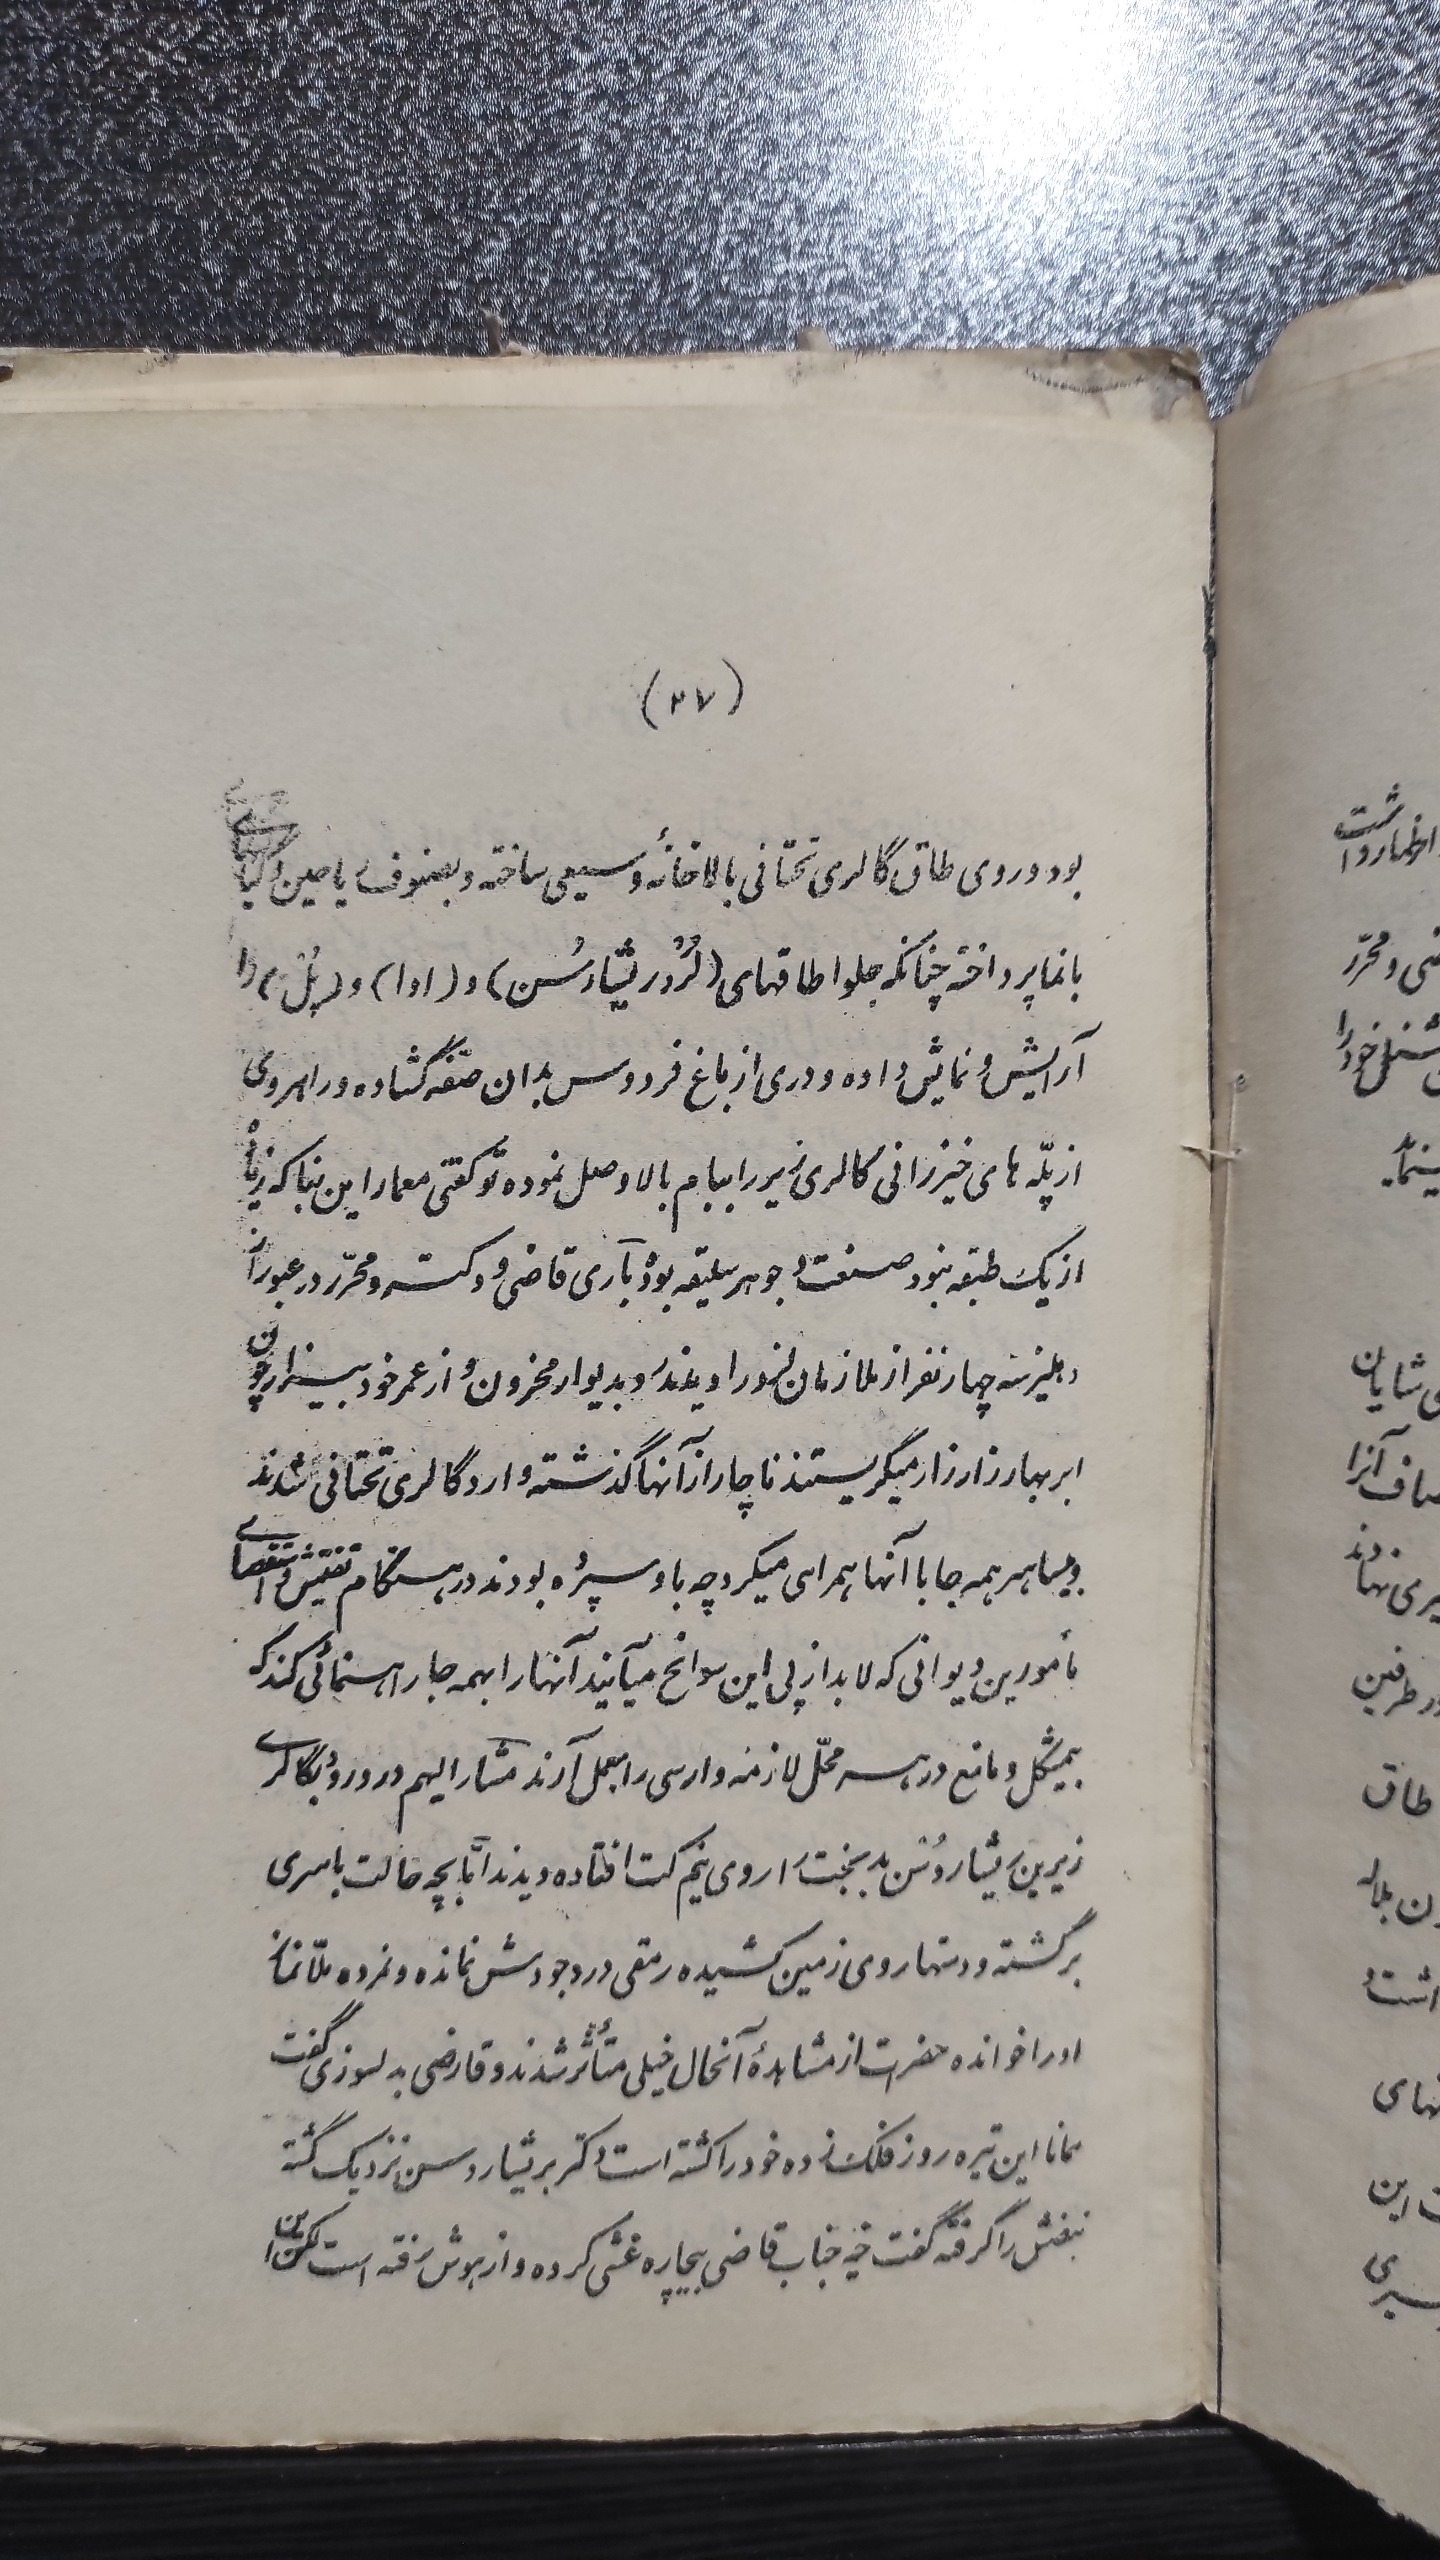 (۲۷)
بود و روی طاق گالری تحتانی بالاخانهٔ وسیعی ساخته و بصنوف ریاحین و گیاههای
بانما پرداخته چنانکه جلو اطاقهای (لرد ریشاردسن) و (ادا) و (پل) را
آرایش و نمایش داده و دری از باغ فردوس بدان صفّه گشاده و راهروی
از پلّه های خیزرانی گالری زیر را ببام بالا وصل نموده تو گفتی معمار این بنا که زیاده
از یک طبقه نبود صنعت و جوهر سلیقه بود باری قاضی و دکتر و محرّر در عبور از
دهلیز سه چهار نفر از ملازمان لرد را دیدند رو بدیوار محزون و از عمر خود بیزار چون
ابر بهار زار زار میگریستند ناچار از آنها گذشته وارد گالری تحتانی شدند
و یساهر همه جا با آنها همراهی میکرد چه باو سپرده بودند در هنگام تفتیش و استقصای
مأمورین دیوانی که لابد از پی این سوانح میآیند آنها را بهمه جا راهنمائی کند که
بیمشکل و مانع در هر محلّ لازمه وارسی را بعمل آرند مشارالیهم در ورود بگالری
زیرین ریشاردسن بدبخت را روی نیم کت افتاده دیدند امّا بچه حالت با سری
برگشته و دستها روی زمین کشیده رمقی در وجودش نمانده و نمرده ملّا نماز
او را خوانده حضرات از مشاهدهٔ آنحال خیلی متأثر شدند و قاضی بدلسوزی گفت
همانا این تیره روز فلک زده خود را کشته است دکتر بریشاردسن نزدیک گشته
نبضش را گرفته گفت خیر جناب قاضی بیچاره غشی کرده و از هوش رفته است لکن این